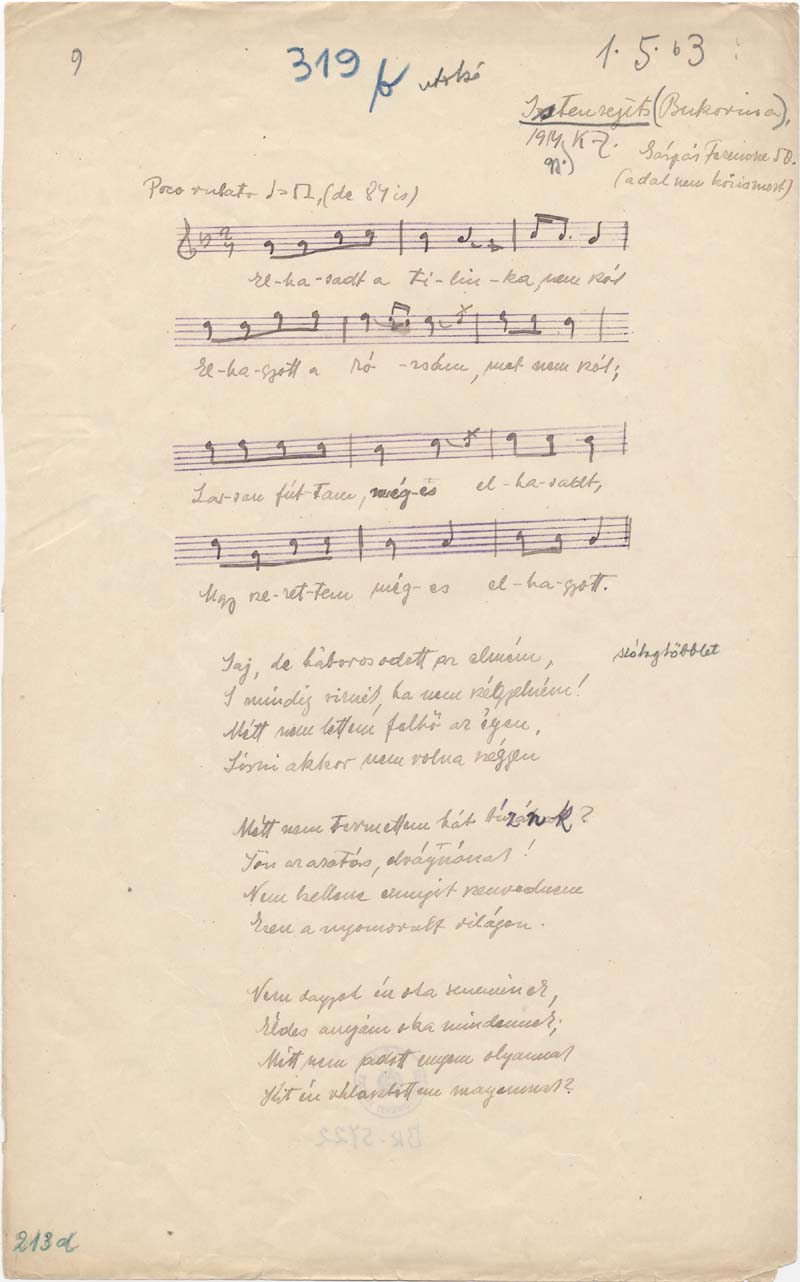 9
319 b utolsó
1. 5. b 3
Istensegíts (Bukovina),
1914 K Z.
Gáspár Ferencné 50.
(a dal nem közismert)
Poco rubato (de 84 is)
El-ha-sadt a ti-lin-ka, nem szól
El-ha-gyott a ró-zsám, met nem szól;
Las-san fúj-tam, még-es el-ha-sadt,
Ugy sze-ret-tem még-es el-ha-gyott.
Jaj, de háborosodott az elmém,
szótagtöbblet
S mindig sirnék, ha nem szégyelném!
Métt nem lettem felhő az égen,
Sirni akkor nem volna szégyen
Métt nem termettem hát búzának?
Jön az aratás, elvágnának!
Nem kellene ennyit szenvednem
Ezen a nyomorult világon.
Nem vagyok én oka semminek,
Édes anyám oka mindennek;
Métt nem adott engem olyannak
Kit én választottam magamnak?
BR. 5722
213d